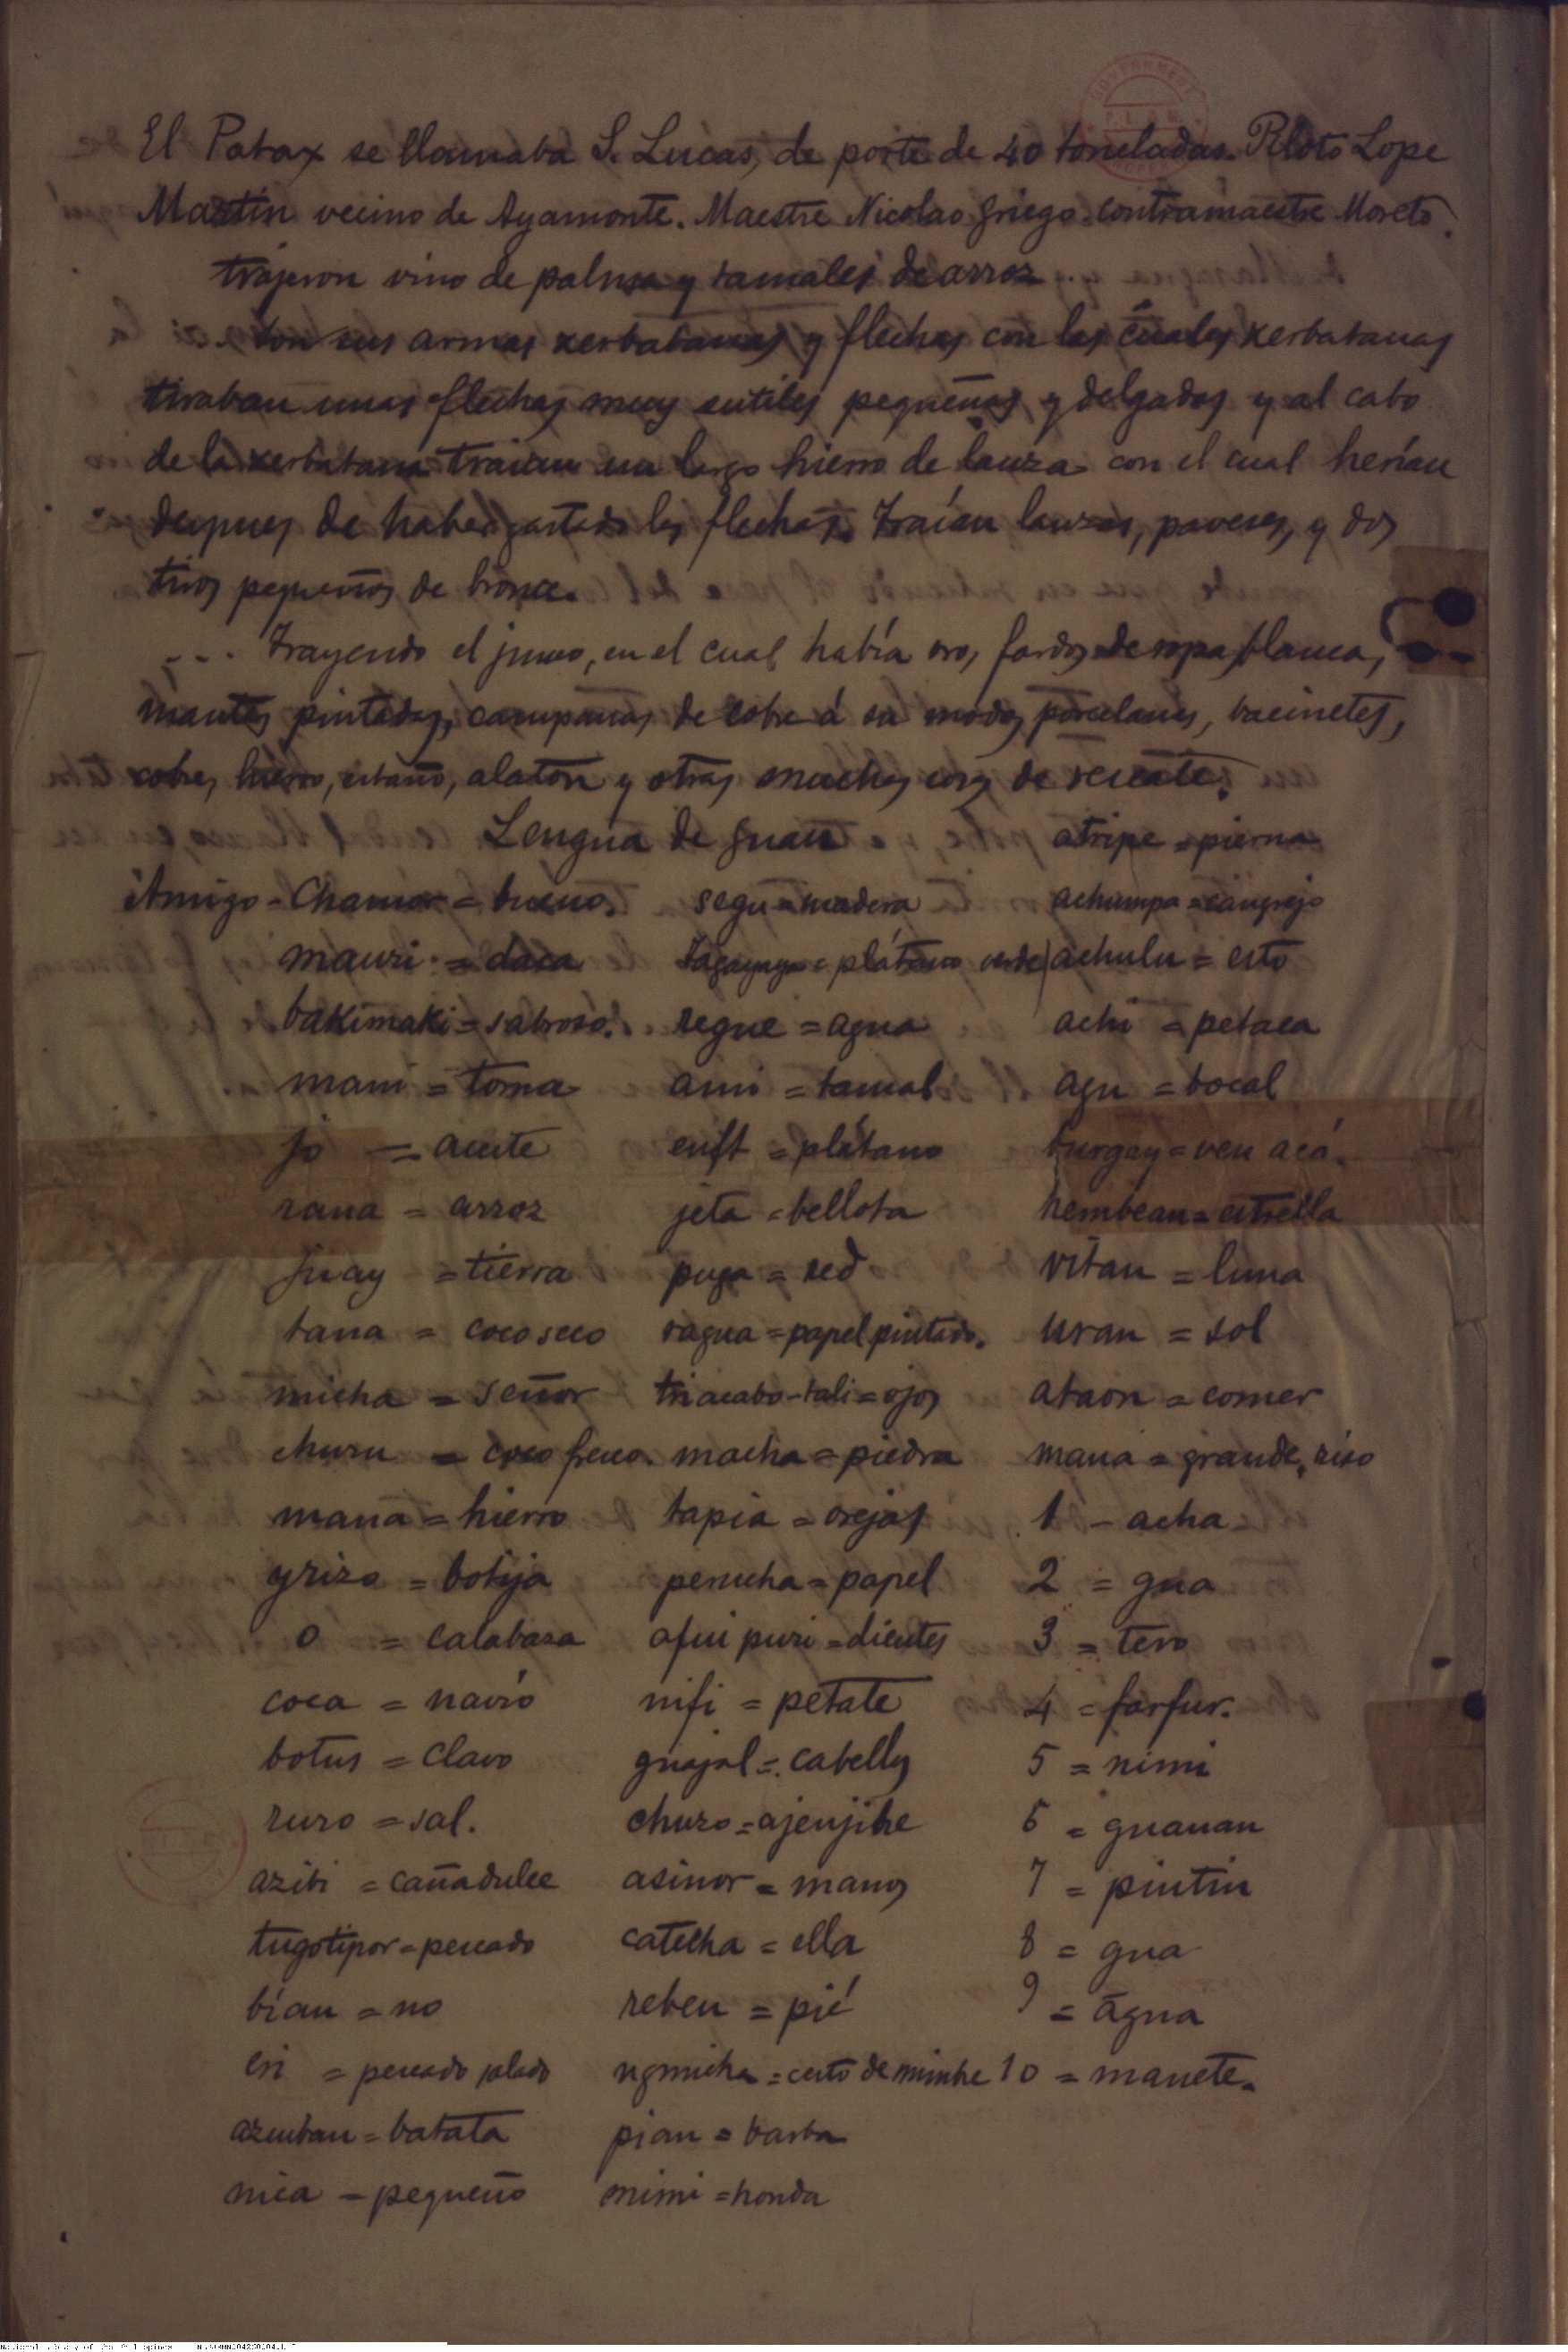 El Patax se llamaba S. Lucas, de porte de 40 toneladas. Piloto Lope
Martin vecino de Ayamonte. Maestre Nicolao griego. contramaestre Moreto.
trajeron vino de palma y tamales de arroz
... con sus armas xerbatanas y flechas con las cuales xerbatanas
tiraban unas flechas muy sutiles pequeñas y delgadas y al cabo
de la xerbatana traian un largo hierro de lanza con el cual herían
despues de haber gastado las flechas. Traían lanzas, paveses, y dos
tiros pequeños de bronce.
... Trayendo el junco, en el cual había oro, fardos de ropa blanca,
mantas pintadas, campanas de cobre á su modo, porcelanas, bacinetes,
cobre, hierro, estaño, alaton y otras muchas cosas de rescate.
Lengua de guan
Amigo - Chamor = bueno.
mauri = daca
bakimaki = sabroso.
mani = toma
jo = aceite
rana = arroz
juay = tierra
tana = coco seco
micha = señor
churu = coco fresco.
mana = hierro
yrizo = botija
o = calabaza
coca = navío
botus = clavo
zuro = sal.
azibi = caña dulce
tugotipor = pescado
bían = no
eri = pescado salado
azuiban = batata
nica = pequeño
segu = madera
tagayaya = plátano verde
regue = agua
ami = tamal
enft = plátano
jeta = bellota
puga = red
ragua = papel pintado.
triacabo-tali = ojos
macha = piedra
tapia = orejas
perucha = papel
afui puri = dientes
nifi = petate
guajal = cabellos
churo = ajenjibe
asinor = manos
catecha = ella
reben = pié
ngmicha = cesto de mimbre
pian = barba
mimi = honda
atripe = pierna
achumpa = cangrejo
achulu = esto
achi = petaca
agu = bocal
burgay = ven acá.
rembean = estrella
vitan = luna
uran = sol
ataon = comer
mana = grande, rico
1 - acha
2 = gua
3 = tero
4 = farfur.
5 = nimi
6 = guanan
7 = pintin
8 = gua
9 = agua
10 = manete.